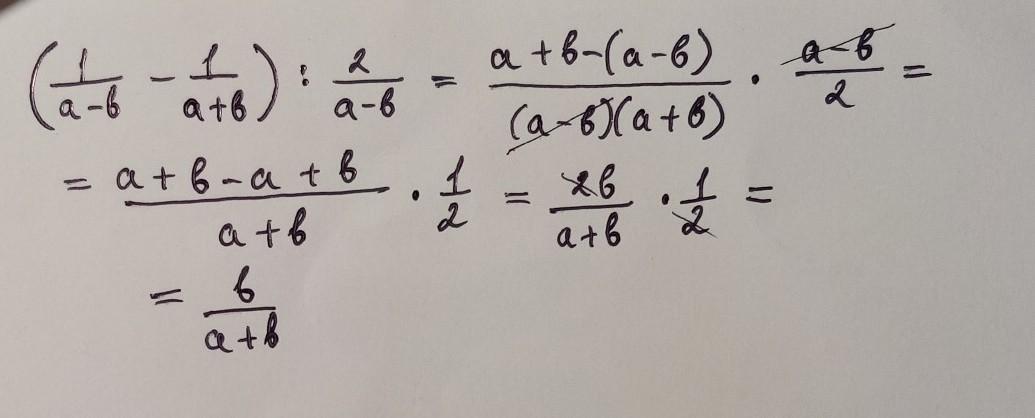 (1/(a-b) - 1/(a+b)) : 2/(a-b) = (a+b-(a-b))/((a-b)(a+b)) · (a-b)/2 =
= (a+b-a+b)/(a+b) · 1/2 = 2b/(a+b) · 1/2 =
= b/(a+b)